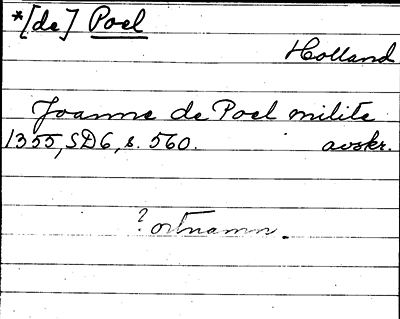 *[de] Poel
Holland
Joanne de Poel milite
1355, SD6, s. 560. avskr.
? ortnamn.